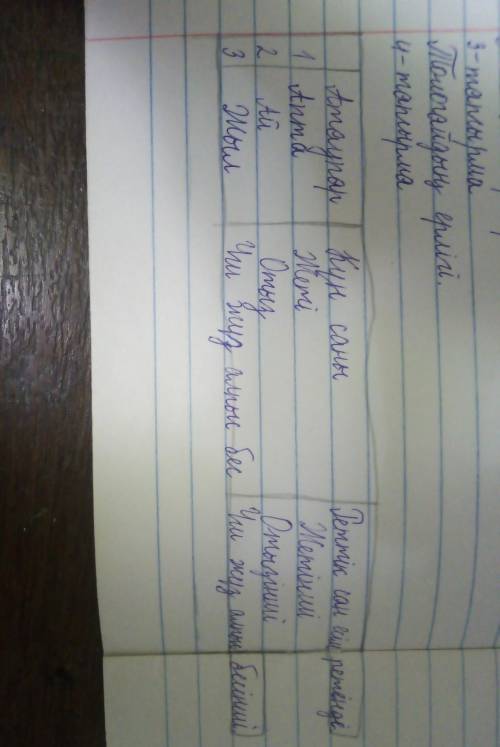 3-тапсырма
Толағайдың ерлігі.
4-тапсырма
Атаулар Күн саны Реттік сан есім ретінде
1 Апта Жеті Жетінші
2 Ай Отыз Отызыншы
3 Жыл Үш жүз алпыс бес Үш жүз алпыс бесінші